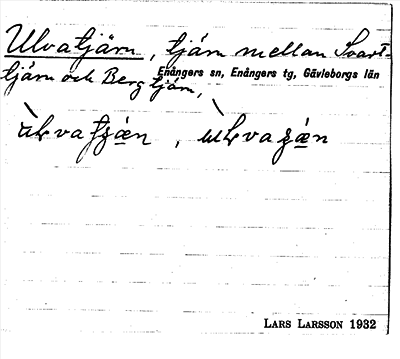 Ulvatjärn, tjärn mellan Svart-
Enångers sn, Enångers tg, Gävleborgs län
tjärn och Bergtjärn,
LARS LARSSON 1932